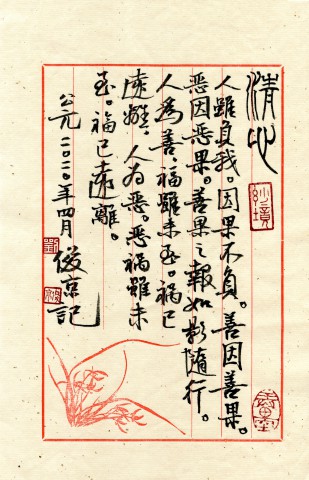 清心
人雖負我。因果不負。善因善果。
恶因恶果。善果之報如影随行。
人為善、福雖未至。祸已
遠離、人为恶。恶祸雖未
至。福已遠離。
公元二〇二〇年四月
俊京記